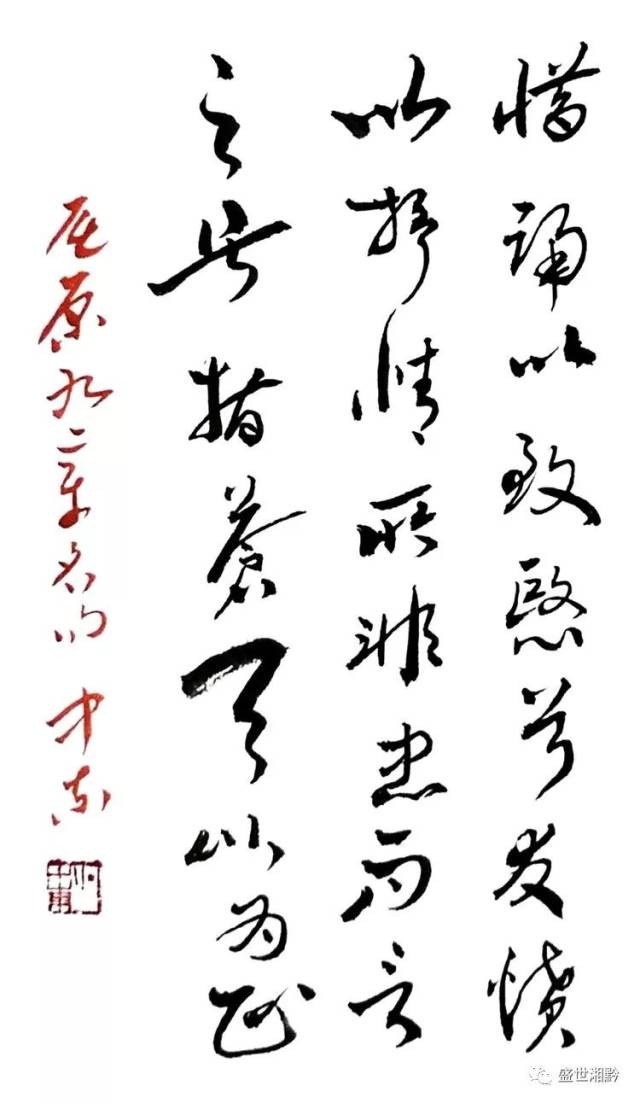 惜誦以致愍兮发憤
以抒情所非忠而言
之兮指蒼天以为正
屈原九章名句
盛世湘黔